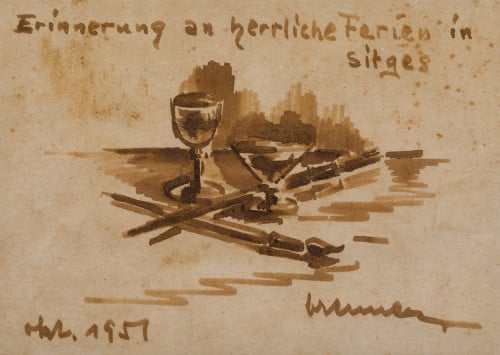 Erinnerung an herrliche Ferien in
Sitges
okt. 1951